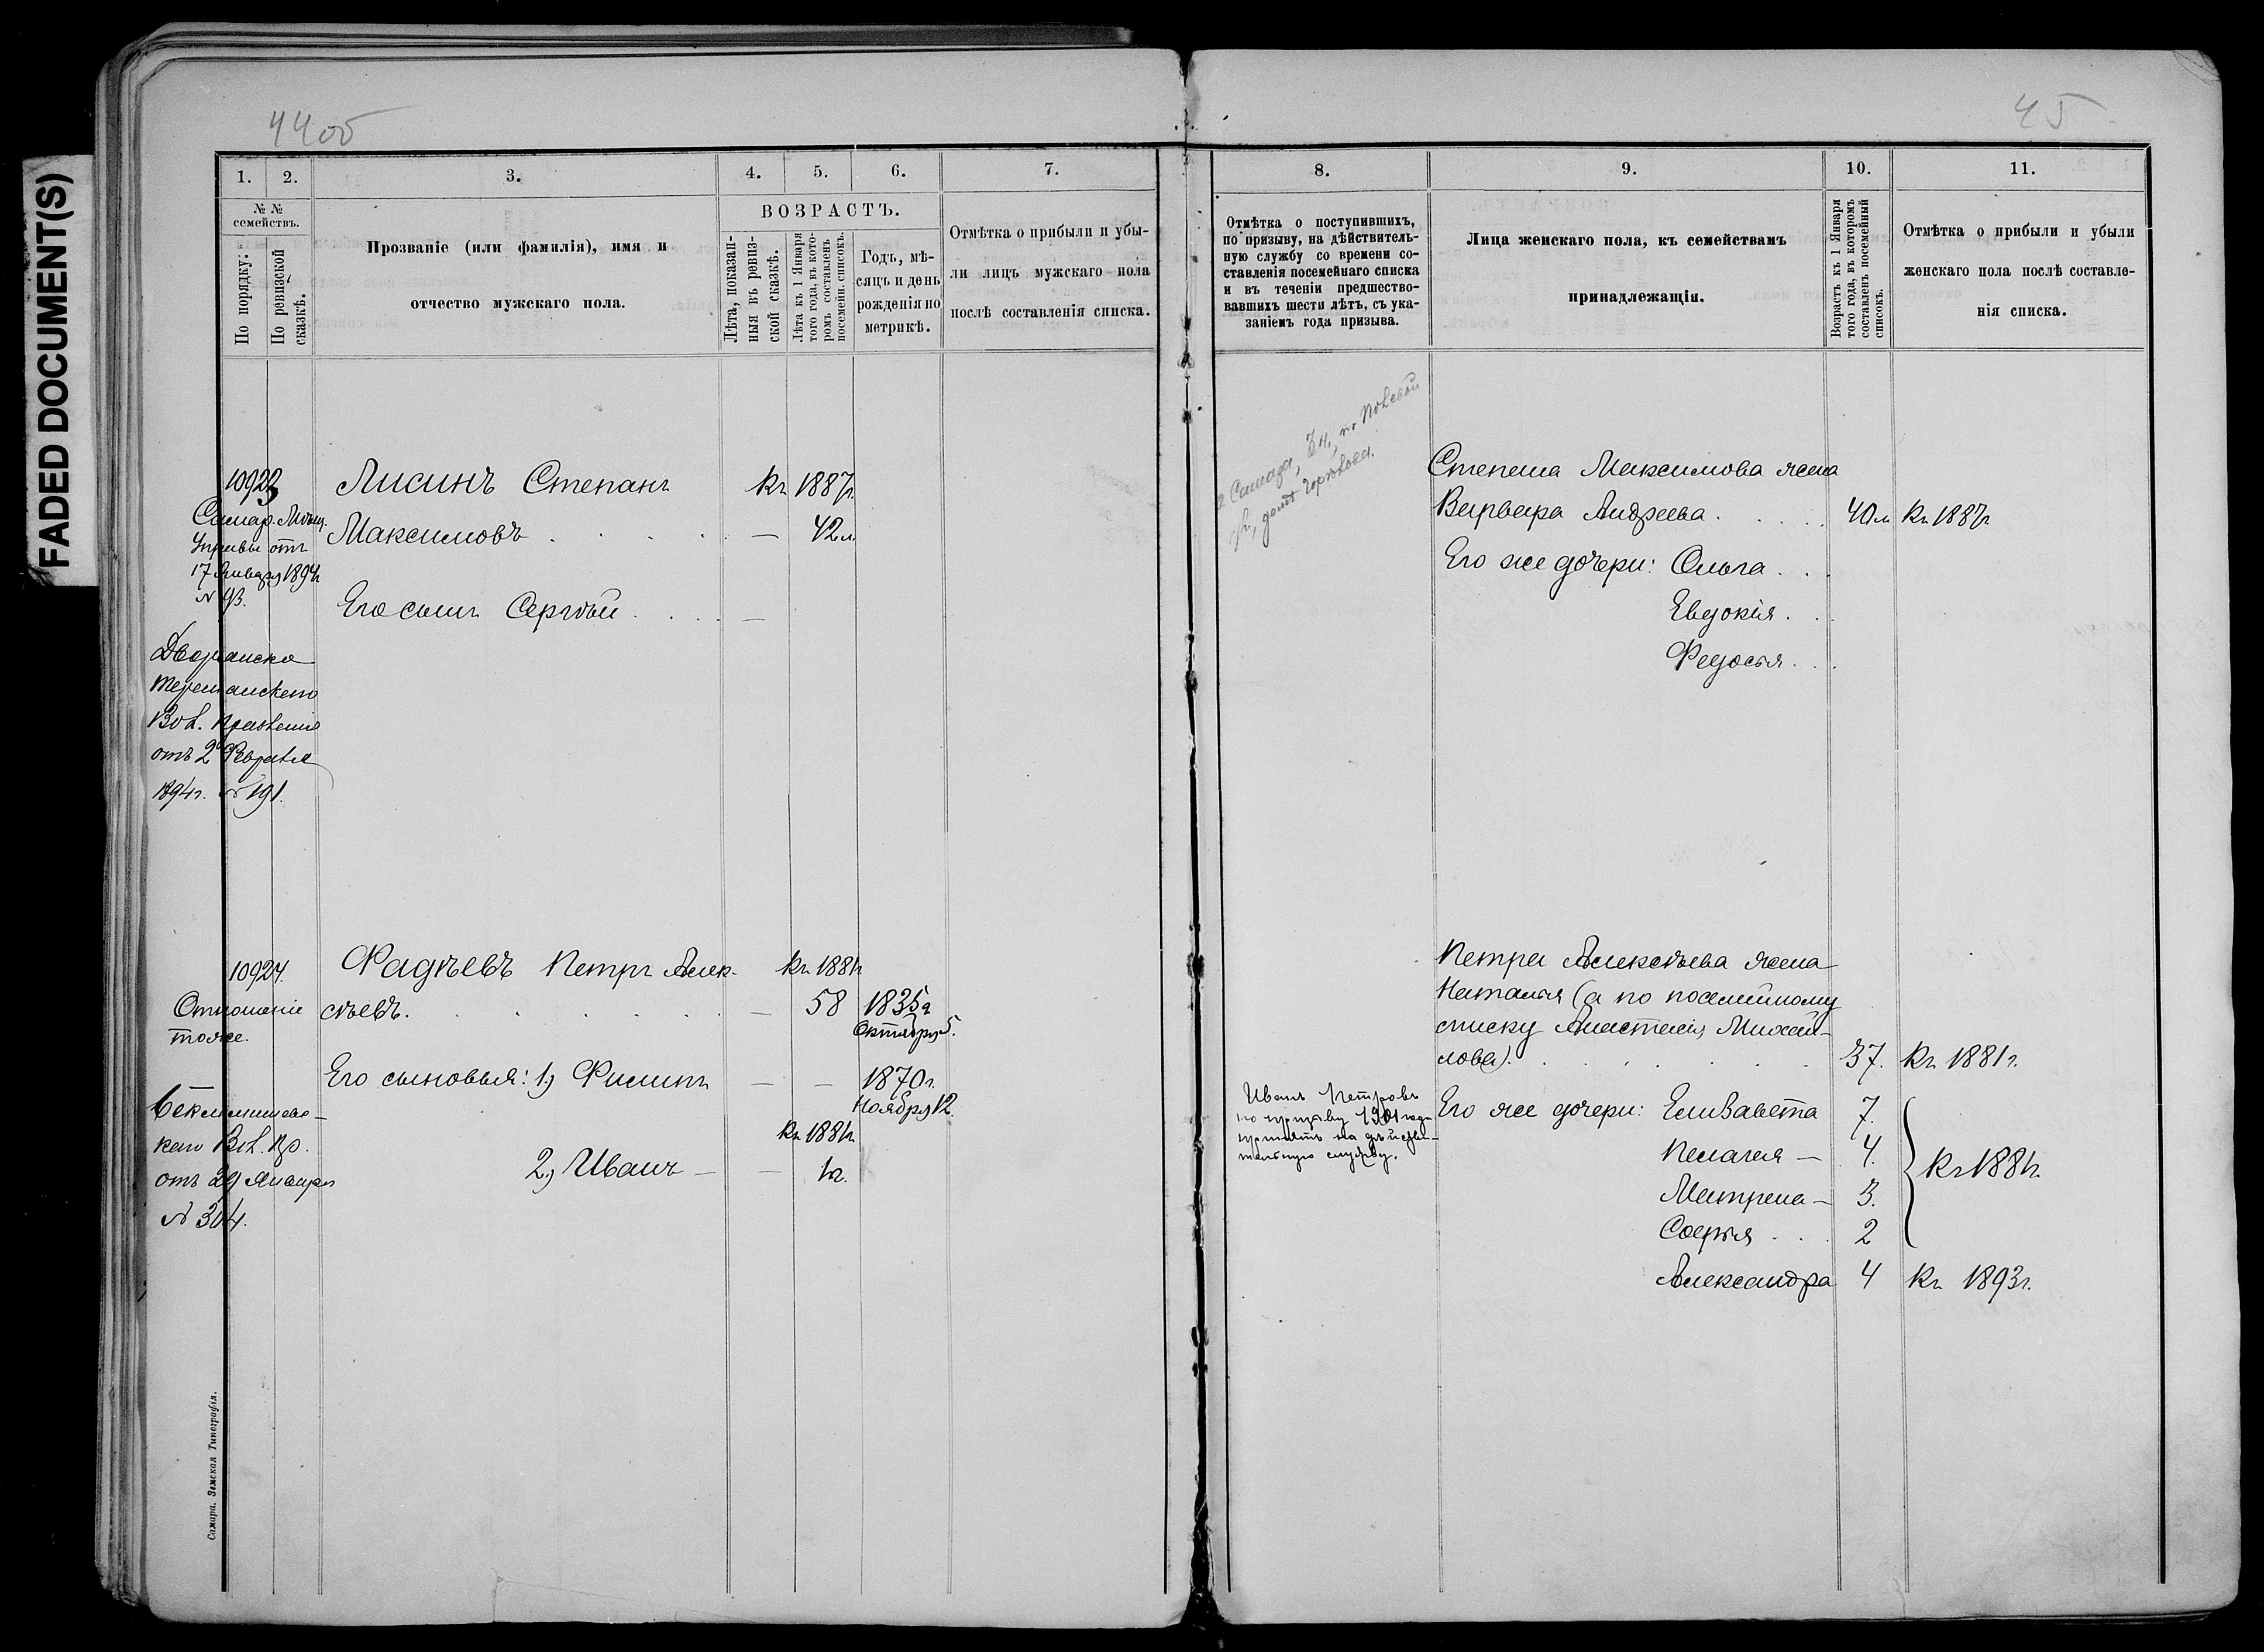 FADED DOCUMENT(S)
44об
45
1.
2.
3.
4.
5.
6.
7.
№ №
семействъ.
По порядку:
По ревизской
сказкѣ.
Прозваніе (или фамилія), имя и
отчество мужскаго пола.
ВОЗРАСТЪ.
Лѣта, показан-
ныя въ ревиз-
ской сказкѣ.
Лѣта къ 1 Января
того года, въ кото-
ромъ составленъ
посемейн. списокъ.
Годъ, мѣ-
сяцъ и день
рожденія по
метрикѣ.
Отмѣтка о прибыли и убы-
ли лицъ мужскаго пола
послѣ составленія списка.
10923
Самар. Мѣщ.
Управы отъ
17 Января 1894г
№ 93.
Дворянско
Терешанскаго
Вол. Правленія
отъ 2 Февраля
1894г. № 191.
Лисинъ Степанъ
Максимовъ
Къ 1887г.
42 л.
Его сынъ Сергѣй
10924.
Отношеніе
тоже.
Бекл
каго Вол. Пр.
отъ 29 Января
№ 304.
Фадѣевъ Петръ Алек-
сѣевъ.
Къ 1881г.
58
1835г
Октября 5.
Его сыновья: 1, Филипъ
1870г.
Ноября 12.
Къ 1881г.
2, Иванъ
1г.
Самара. Земская Типографія.
8.
9.
10.
11.
Отмѣтка о поступившихъ,
по призыву, на дѣйствитель-
ную службу со времени со-
ставленія посемейнаго списка
и въ теченіи предшество-
вавшихъ шести лѣтъ, съ ука-
заніемъ года призыва.
Лица женскаго пола, къ семействамъ
принадлежащія.
Возрастъ къ 1 Января
того года, въ которомъ
составленъ посемейный
списокъ.
Отмѣтка о прибыли и убыли
женскаго пола послѣ составле-
нія списка.
г. Самара, по Полевой
ул, домъ Горшкова.
Степана Максимова жена
Варвара Андреева
40 л
Къ 1887г
Его же дочери: Ольга
Евдокія
Федосья
Петра Алексѣева жена
Наталья (а по посемейному
списку Анастасія Михай-
лова).
37.
Къ 1881г.
Иванъ Петровъ
по призыву 1901 года
принятъ на дѣйстви-
тельную службу.
Его же дочери: Елизавета
7.
Пелагея
4.
Матрена
3.
Софья
2
Къ 1881г.
Александра
4
Къ 1893г.